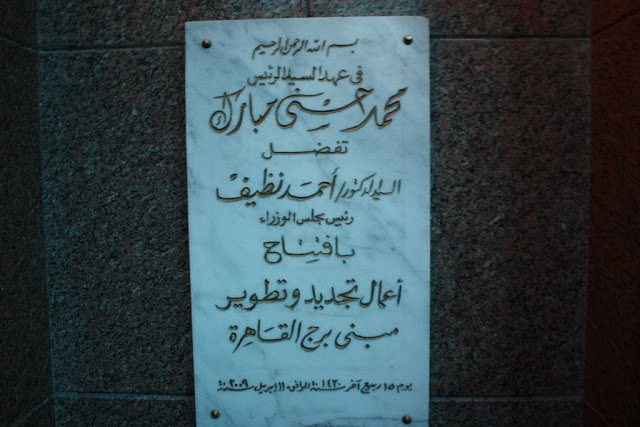 بسم الله الرحمن الرحيم
فى عهد السيد الرئيس
محمد حسنى مبارك
تفضل
السيد الدكتور/ أحمد نظيف
رئيس مجلس الوزراء
بافتتاح
أعمال تجديد وتطوير
مبنى برج القاهرة
يوم ١٥ ربيع آخر سنة ١٤٣٠ الموافق ١١ إبريل سنة ٢٠٠٩